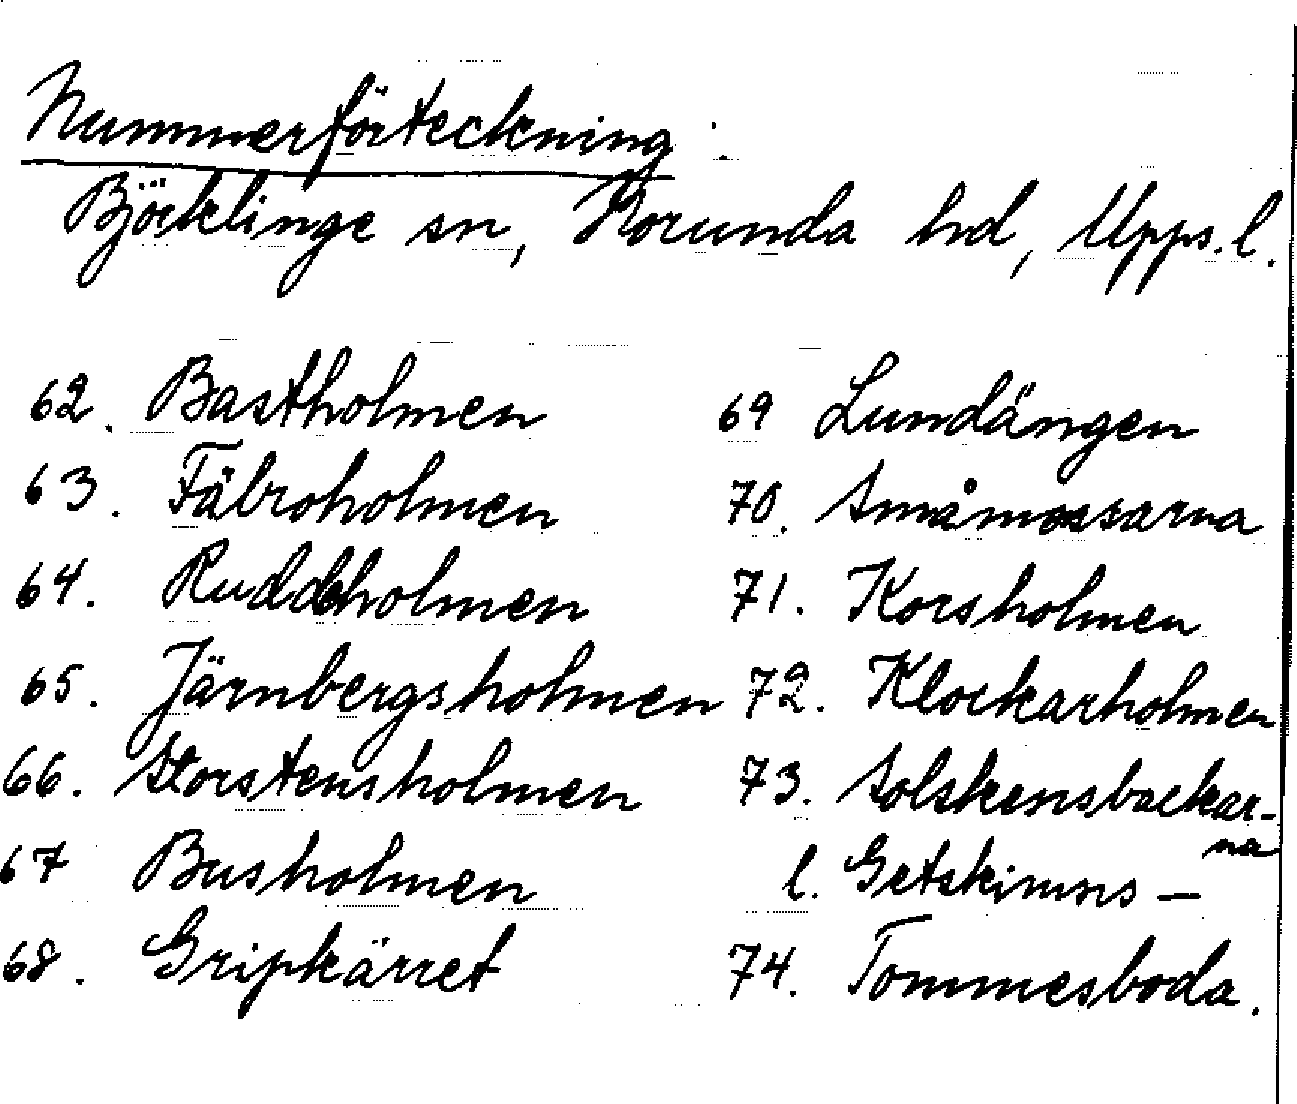 Nummerförteckning:
Björklinge sn, Norunda hd, Upps. l.
62. Bastholmen
63. Fäbroholmen
64. Ruddholmen
65. Järnbergsholmen
66. Storstensholmen
67 Busholmen
68. Gripkärret
69 Lundängen
70. Småmossarna
71. Korsholmen
72. Klockarholmen
73. Solskensbackar-
na
l. Getskinns –
74. Tommesboda.